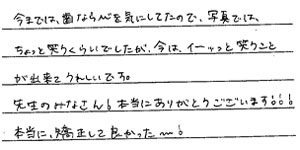 今までは、歯ならびを気にしてたので、写真では、
ちょっと笑うくらいでしたが、今は、イーッと笑うこと
が出来てうれしいです。
先生のみなさん！本当にありがとうございます!!!
本当に、矯正して良かった〜！